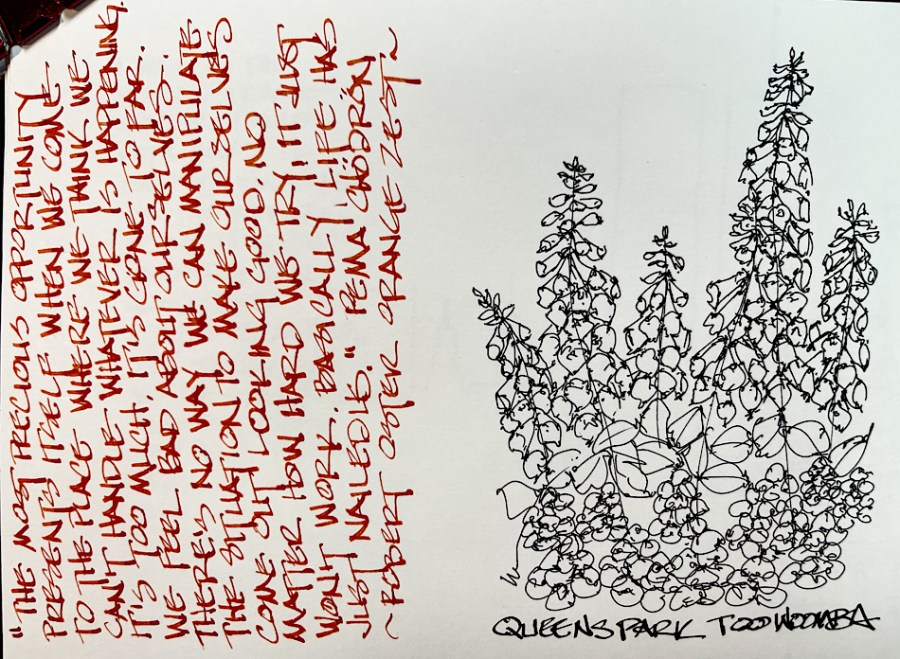 "THE MOST PRECIOUS OPPORTUNITY
PRESENTS ITSELF WHEN WE COME
TO THE PLACE WHERE WE THINK WE
CAN'T HANDLE WHATEVER IS HAPPENING.
IT'S TOO MUCH, IT'S GONE TO FAR.
WE FEEL BAD ABOUT OURSELVES.
THERE'S NO WAY WE CAN MANIPULATE
THE SITUATION TO MAKE OURSELVES
COME OUT LOOKING GOOD. NO
MATTER HOW HARD WE TRY, IT JUST
WON'T WORK. BASICALLY, LIFE HAS
JUST NAILED US." PEMA CHÖDRÖN
~ROBERT OSTER ORANGE ZEST~
QUEENS PARK TOOWOOMBA